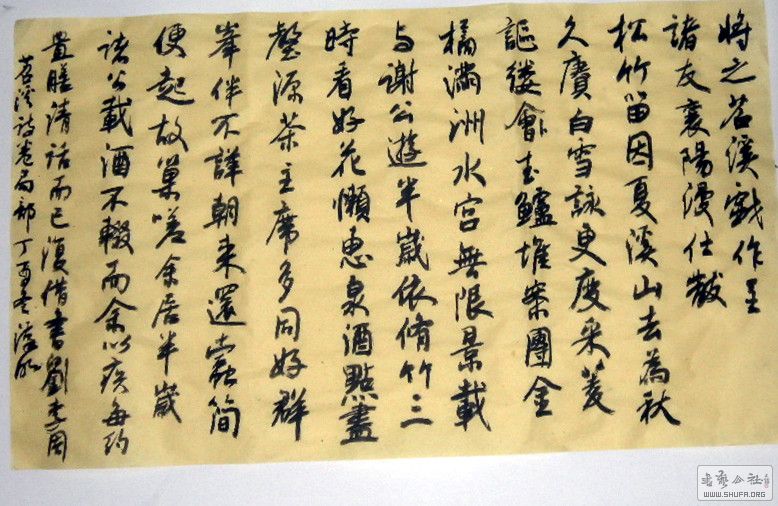 將之苕溪戲作呈
諸友襄陽漫仕黻
松竹留因夏溪山去為秋
久賡白雪詠更度采菱
謳縷會玉鱸堆案團金
橘滿洲水宮無限景載
与謝公遊半歲依脩竹三
時看好花懶惠泉酒點盡
壑源茶主席多同好群
峯伴不譁朝来還蠹簡
便起故巢嗟余居半歲
諸公載酒不輟而余以疾每約
置膳清話而已復借書劉李周
苕溪詩卷局部丁
書法公社
WWW.SHUFA.ORG